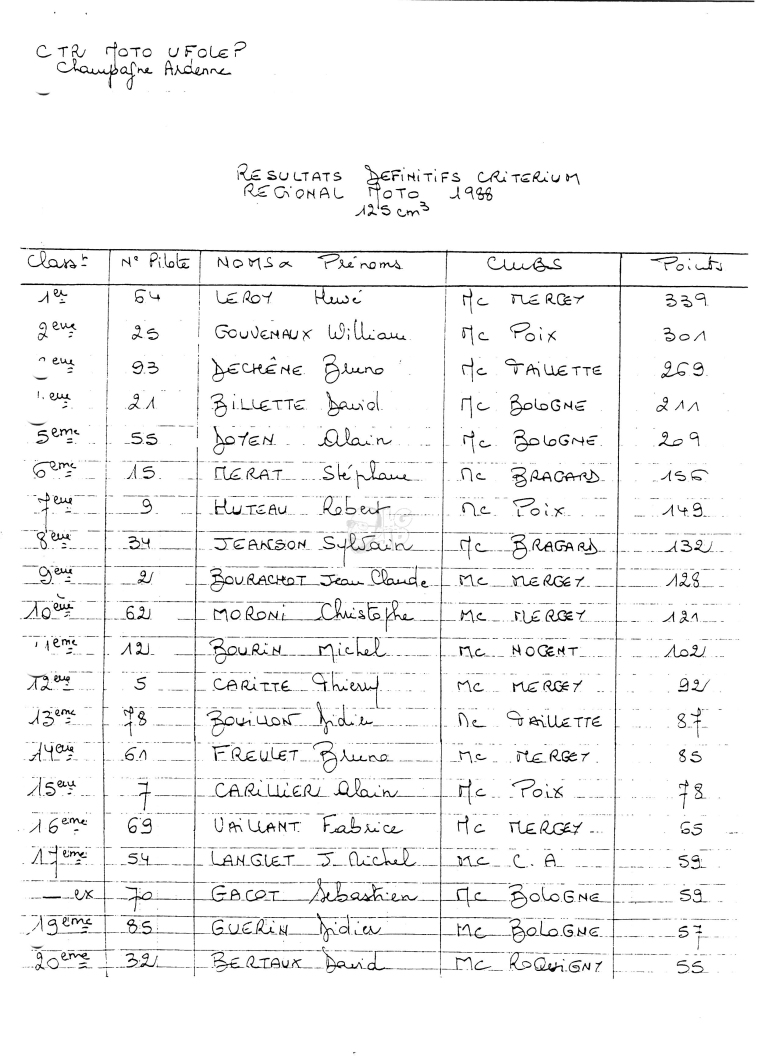 CTR MOTO UFOLEP
Champagne Ardenne
RESULTATS DEFINITIFS CRITERIUM
REGIONAL MOTO 1988
125 cm³
Classt N° Pilote NOMS & Prénoms CLUBS Points
1er 64 LEROY Hervé MC MERGEY 339
2eme 25 GOUVENAUX William MC Poix 301
eme 93 DECHÊNE Bruno MC TAILLETTE 269
eme 21 BILLETTE David MC BOLOGNE 211
5eme 55 DOYEN Alain MC BOLOGNE 209
6eme 15 MERAT Stéphane MC BRAGARD 156
7eme 9 HUTEAU Robert MC Poix 149
8eme 34 JEANSON Sylvain MC BRAGARD 132
9eme 2 BOURACHOT Jean Claude MC MERGEY 128
10eme 62 MORONI Christophe MC MERGEY 121
11eme 12 BOURIN Michel MC NOGENT 102
12eme 5 CARITTE Thierry MC MERGEY 92
13eme 78 BOUILLON Didier MC TAILLETTE 87
14eme 61 FREULET Bruno MC MERGEY 85
15eme 7 CARILLIER Alain MC Poix 78
16eme 69 VAILLANT Fabrice MC MERGEY 65
17eme 54 LANGLET J. Michel MC C. A 59
— ex 70 GACOT Sebastien MC BOLOGNE 59
19eme 85 GUERIN Didier MC BOLOGNE 57
20eme 32 BERTAUX David MC ROQUIGNY 55